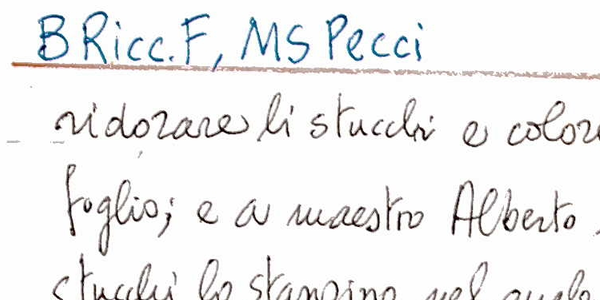 B Ricc. F, MS Pecci
ridorare li stucchi e color
foglio; e a maestro Alberto
stucchi lo stanzino nel quale